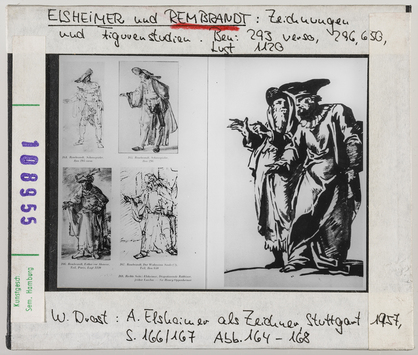 ELSHEIMER und REMBRANDT: Zeichnungen
und Figurenstudien. Ben: 293 verso, 296, 650,
Lugt 1120
108955
Kunstgesch.
Sem. Hamburg
W. Drost: A. Elsheimer als Zeichner, Stuttgart 1957,
S. 166/167 Abb. 164 - 168